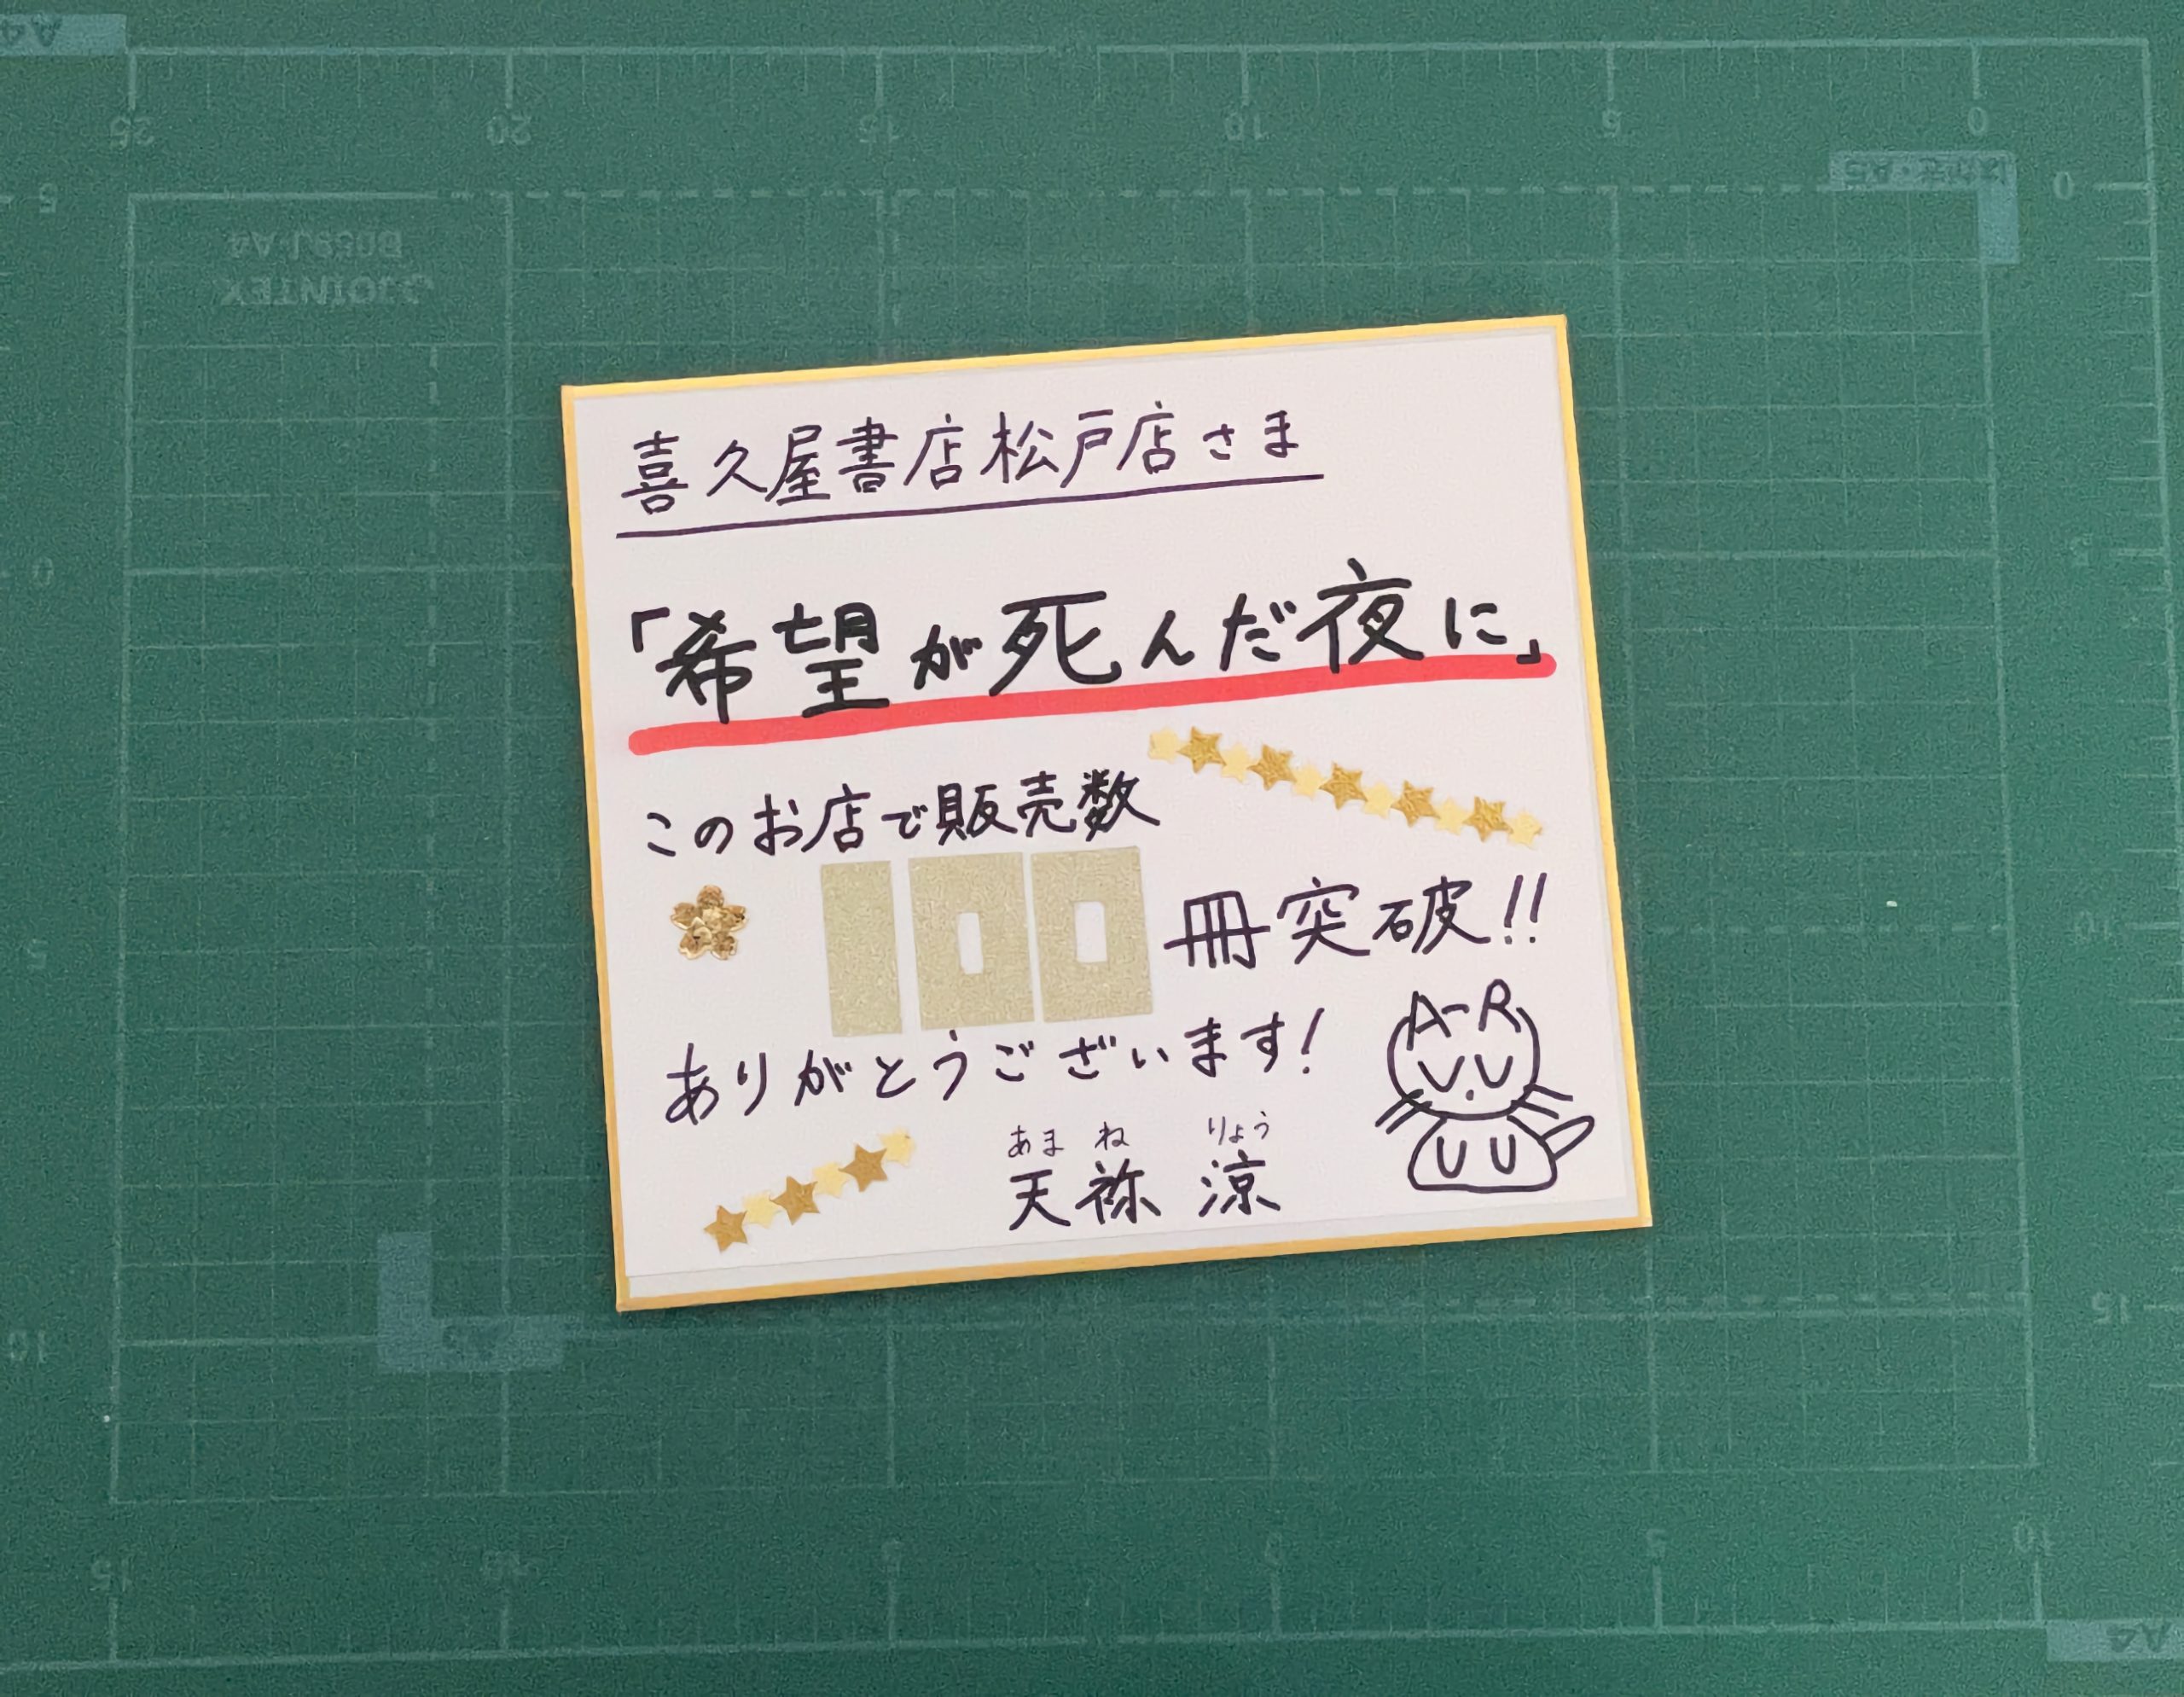 喜久屋書店松戸店さま
「希望が死んだ夜に」
このお店で販売数
100冊突破!!
ありがとうございます!
あまね りょう
天祢 涼
A-R
A4
25 20 15 10 5 0
はがき・A5
B059J-A4
JOINTEX
5 0 5 10
0 5 10 15
A5
15 10 5 5 10
A4